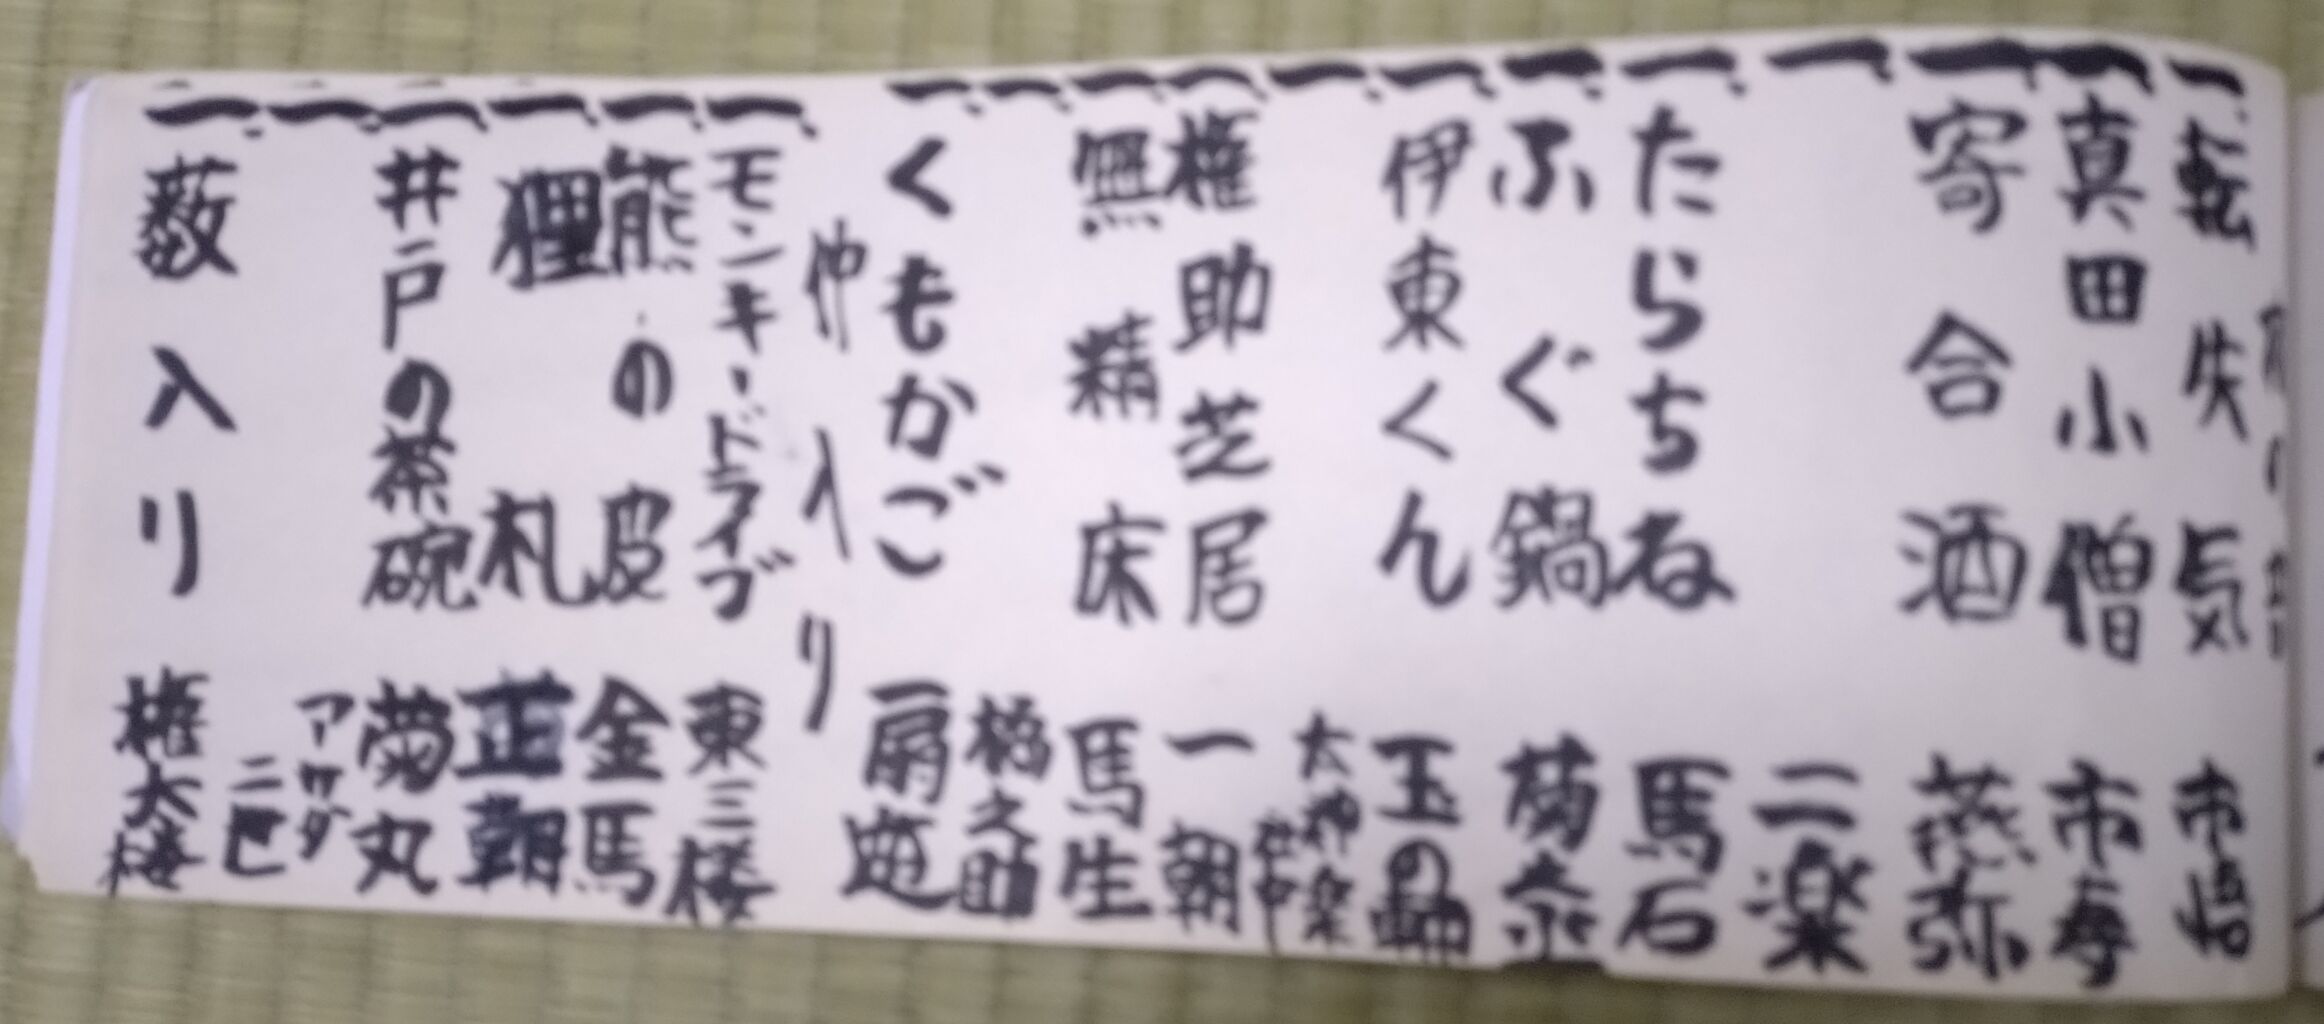 一、転失気 市悟
一、真田小僧 市寿
一、寄合酒 燕弥
一、二楽
一、たらちね 馬石
一、ふぐ鍋 菊泰
一、伊東くん 玉の輔
一、太神楽
一、権助芝居 一朝
一、無精床 馬生
一、橘之助
一、くもかご 扇遊
仲入り
一、モンキードライブ 東三楼
一、熊の皮 金馬
一、狸札 正朝
一、井戸の茶碗 菊丸
一、アサダ二世
一、薮入り 権太楼